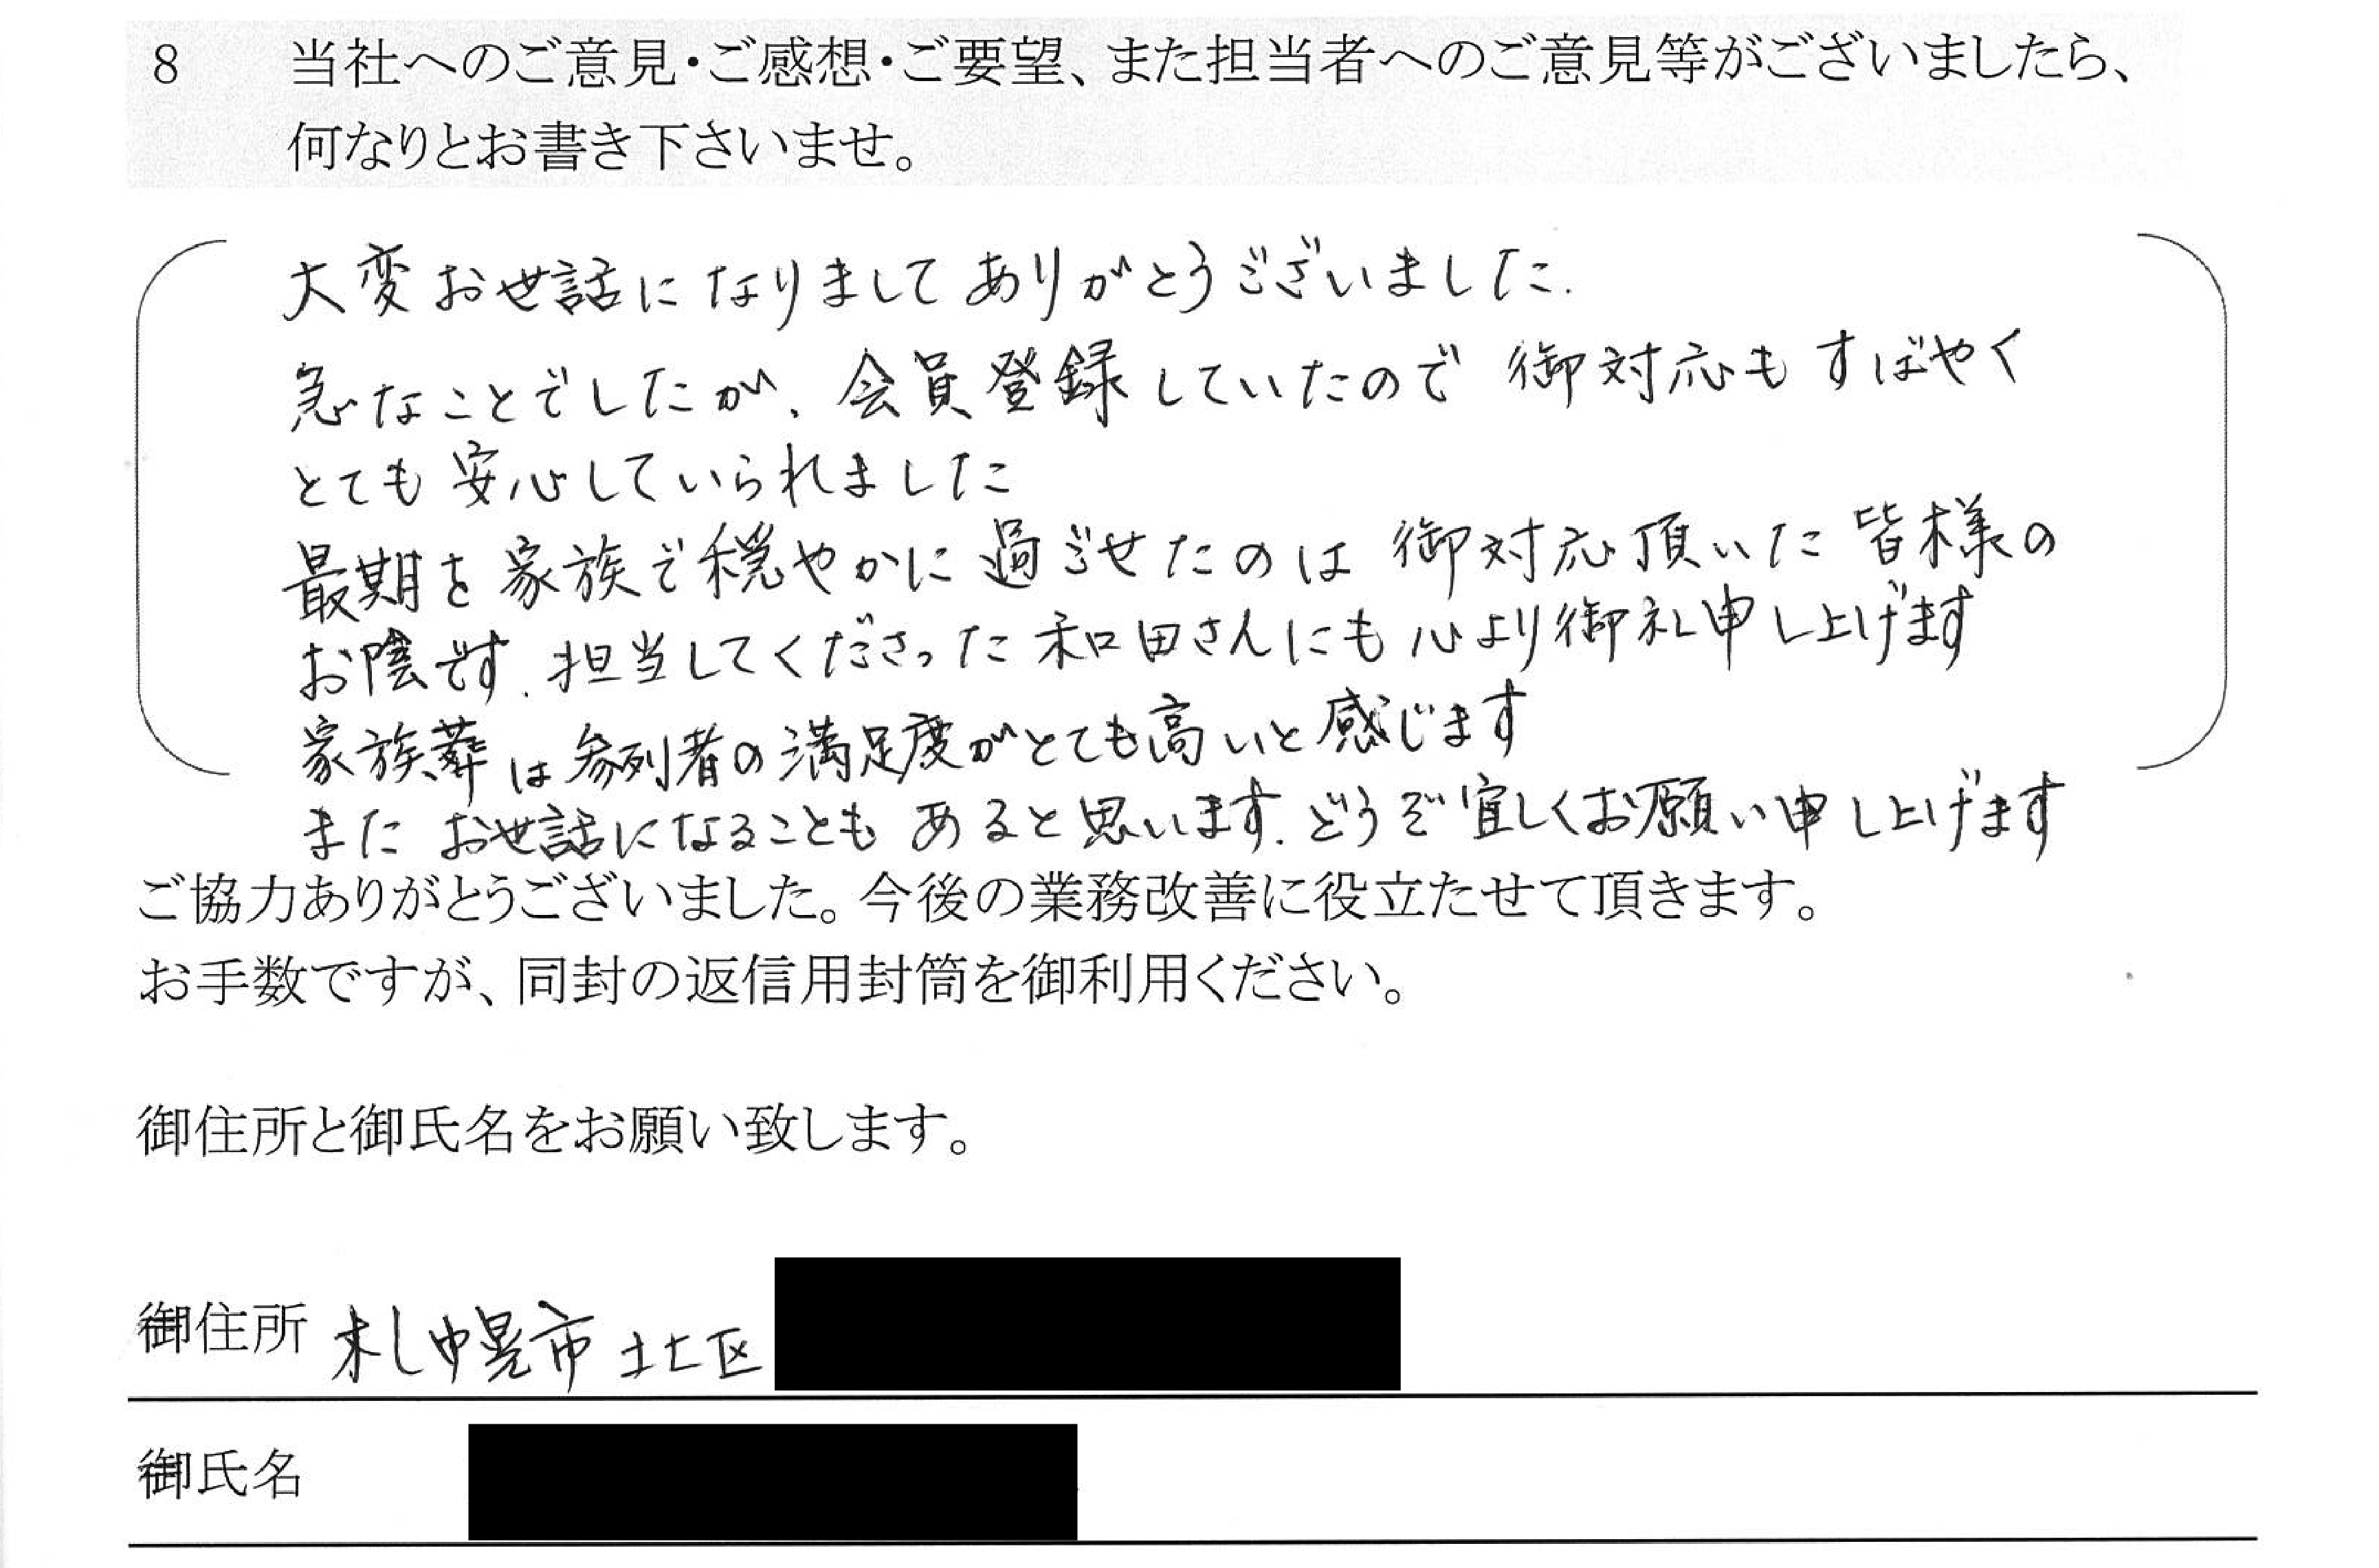 8 当社へのご意見・ご感想・ご要望、また担当者へのご意見等がございましたら、
何なりとお書き下さいませ。
大変お世話になりましてありがとうございました.
急なことでしたが、会員登録していたので御対応もすばやく
とても安心していられました
最期を家族で穏やかに過ごせたのは御対応頂いた皆様の
お陰です.担当してくださった和田さんにも心より御礼申し上げます
家族葬は参列者の満足度がとても高いと感じます
またお世話になることもあると思います.どうぞ宜しくお願い申し上げます
ご協力ありがとうございました。今後の業務改善に役立たせて頂きます。
お手数ですが、同封の返信用封筒を御利用ください。
御住所と御氏名をお願い致します。
御住所 札幌市北区
御氏名